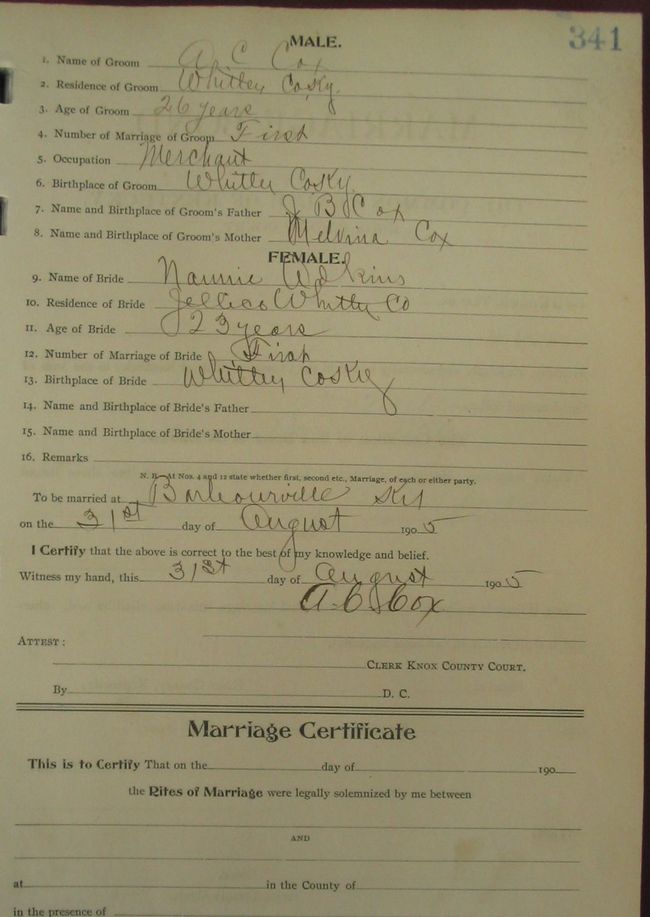 341
MALE.
1. Name of Groom A C Cox
2. Residence of Groom Whitley Co Ky.
3. Age of Groom 26 years
4. Number of Marriage of Groom First
5. Occupation Merchant
6. Birthplace of Groom Whitley Co Ky.
7. Name and Birthplace of Groom's Father J B Cox
8. Name and Birthplace of Groom's Mother Melvina Cox
FEMALE.
9. Name of Bride Nannie Wilkins
10. Residence of Bride Jellico Whitley Co
11. Age of Bride 23 years
12. Number of Marriage of Bride First
13. Birthplace of Bride Whitley Co Ky
14. Name and Birthplace of Bride's Father
15. Name and Birthplace of Bride's Mother
16. Remarks
N. B. At Nos. 4 and 12 state whether first, second etc., Marriage, of each or either party.
To be married at Barbourville Ky
on the 31st day of August 1905
I Certify that the above is correct to the best of my knowledge and belief.
Witness my hand, this 31st day of August 1905
A. C. Cox
ATTEST:
CLERK KNOX COUNTY COURT.
By D. C.
Marriage Certificate
This is to Certify That on the day of 190
the Rites of Marriage were legally solemnized by me between
AND
at in the County of
in the presence of